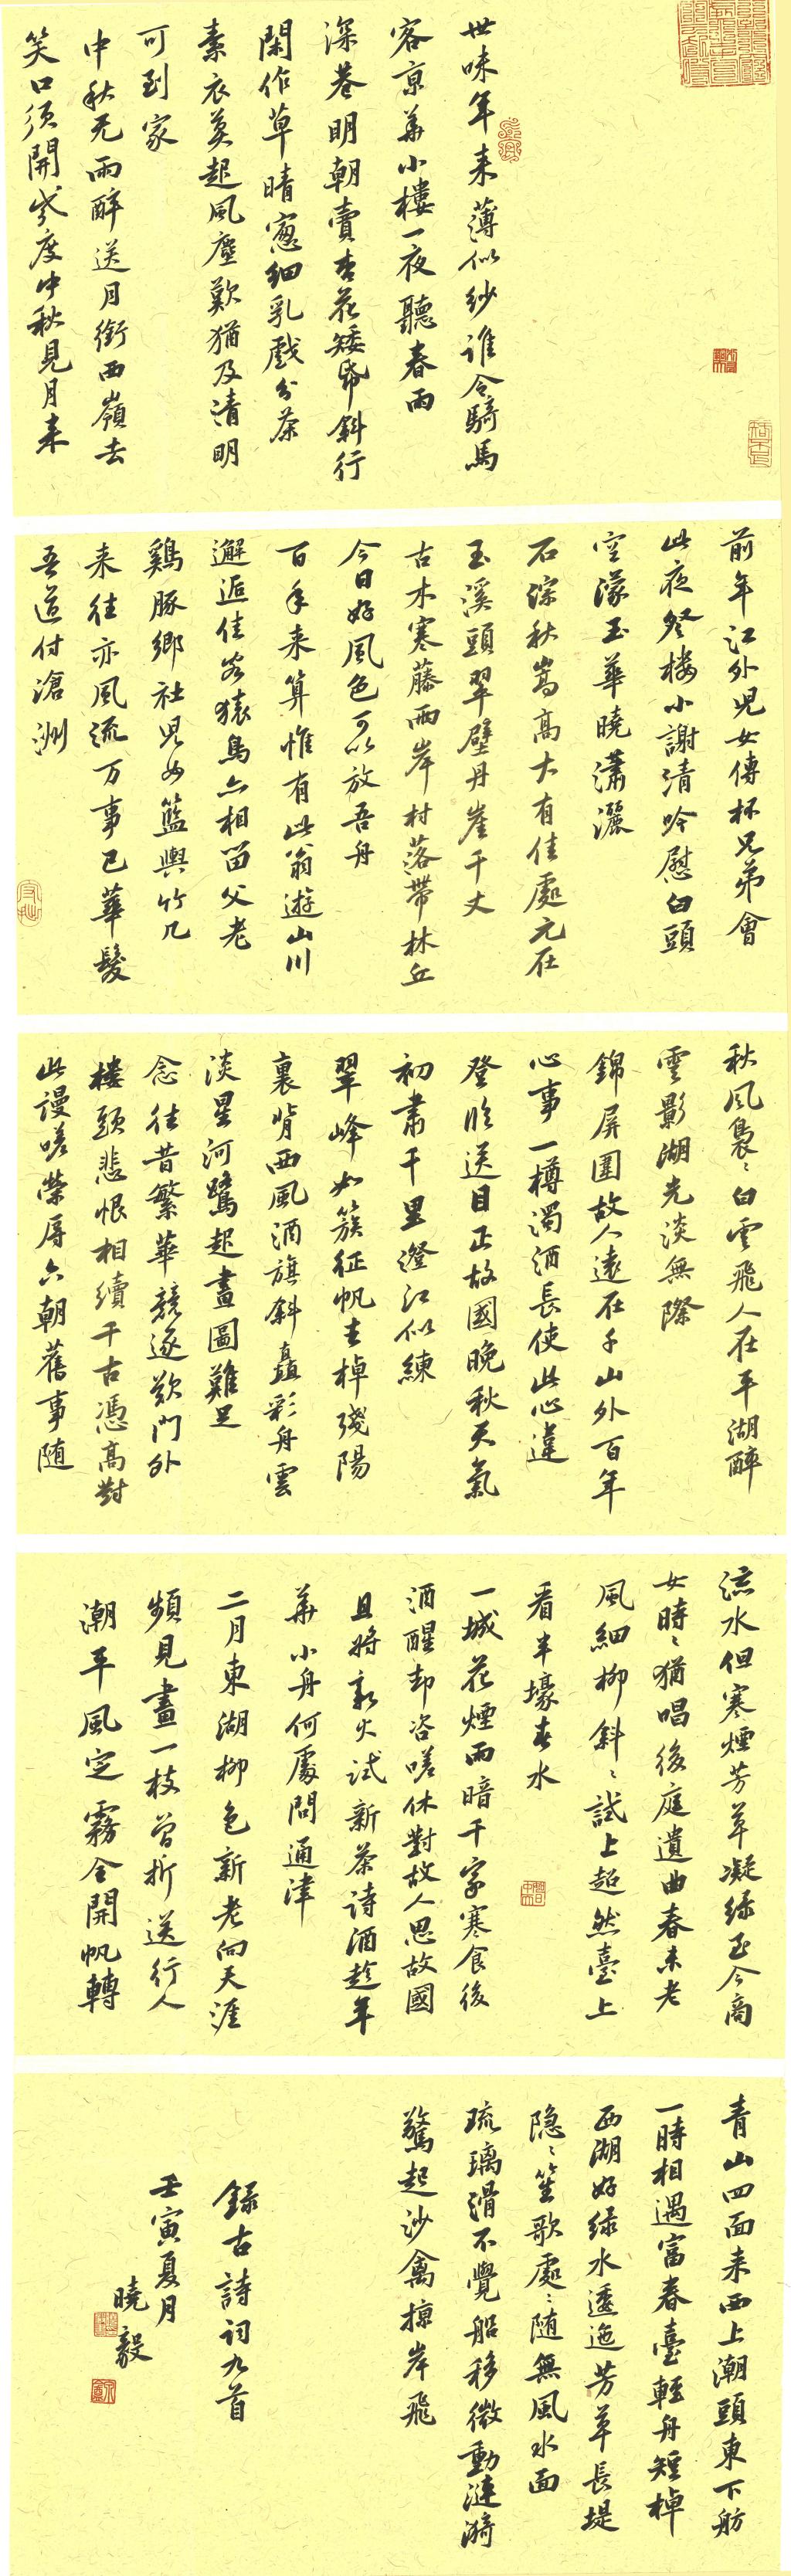 世味年来薄似纱誰令騎馬
客京華小樓一夜聽春雨
深巷明朝賣杏花矮帋斜行
閑作草晴窻細乳戲分茶
素衣莫起風塵歎猶及清明
可到家
中秋无雨醉送月銜西嶺去
笑口須開幾度中秋見月来
前年江外児女傳杯兄弟會
此夜登樓小謝清吟慰白頭
空濛玉華曉瀟灑
石淙秋嵩高大有佳處元在
玉溪頭翠壁丹崖千丈
古木寒藤兩岸村落帶林丘
今日好風色可以放吾舟
百年来算惟有此翁遊山川
邂逅佳客猿鳥亦相留父老
鷄豚鄉社児女籃輿竹几
来往亦風流万事已華髮
吾道付滄洲
秋風裊〻白雲飛人在平湖醉
雲影湖光淡無際
錦屏圍故人遠在千山外百年
心事一樽濁酒長使此心違
登臨送目正故國晚秋天氣
初肅千里澄江似練
翠峰如簇征帆去棹殘陽
裏背西風酒旗斜矗彩舟雲
淡星河鷺起畫圖難足
念往昔繁華競逐歎門外
樓頭悲恨相續千古憑高對
此謾嗟榮辱六朝舊事随
流水但寒煙芳草凝绿至今商
女時〻猶唱後庭遺曲春未老
風細柳斜〻試上超然臺上
看半壕春水
一城花煙雨暗千家寒食後
酒醒却咨嗟休對故人思故國
且将新火試新茶詩酒趁年
華小舟何處問通津
二月東湖柳色新老向天涯
頻見畫一枝曾折送行人
潮平風定霧全開帆轉
青山四面来西上潮頭東下舫
一時相遇富春臺輕舟短棹
西湖好绿水逶迤芳草長堤
隐〻笙歌處〻随無風水面
琉璃滑不覺船移微動漣漪
驚起沙禽掠岸飛
録古詩詞九首
壬寅夏月
曉毅